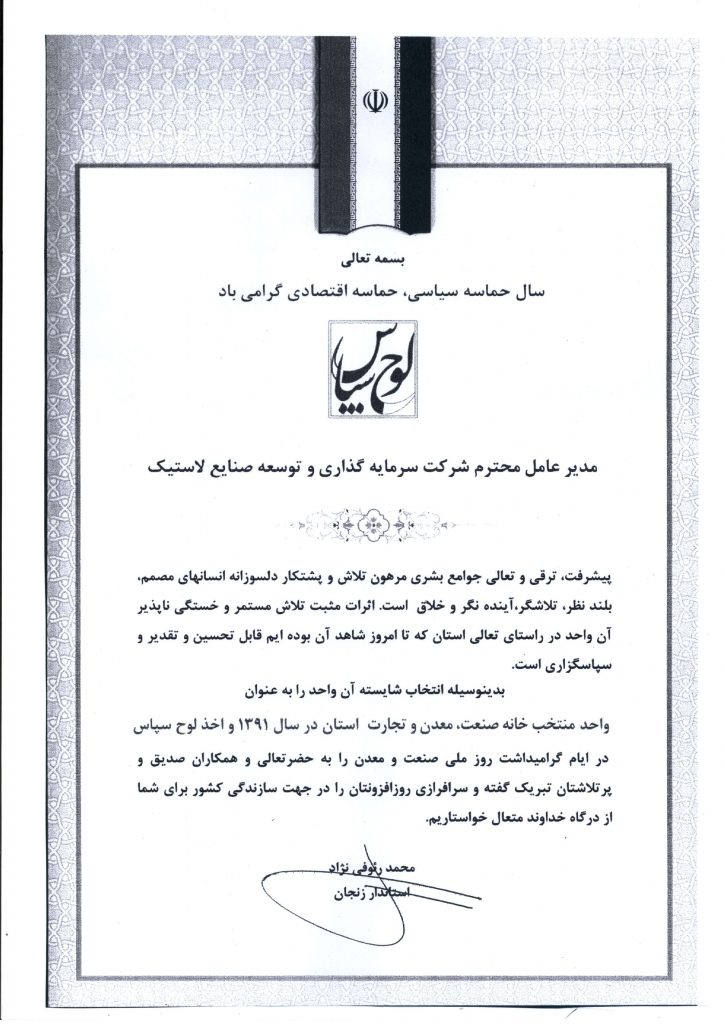 بسمه تعالی
سال حماسه سیاسی، حماسه اقتصادی گرامی باد
لوح سپاس
مدیر عامل محترم شرکت سرمایه گذاری و توسعه صنایع لاستیک
پیشرفت، ترقی و تعالی جوامع بشری مرهون تلاش و پشتکار دلسوزانه انسانهای مصمم،
بلند نظر، تلاشگر،آینده نگر و خلاق است. اثرات مثبت تلاش مستمر و خستگی ناپذیر
آن واحد در راستای تعالی استان که تا امروز شاهد آن بوده ایم قابل تحسین و تقدیر و
سپاسگزاری است.
بدینوسیله انتخاب شایسته آن واحد را به عنوان
واحد منتخب خانه صنعت، معدن و تجارت استان در سال ۱۳۹۱ و اخذ لوح سپاس
در ایام گرامیداشت روز ملی صنعت و معدن را به حضرتعالی و همکاران صدیق و
پرتلاشتان تبریک گفته و سرافرازی روزافزونتان را در جهت سازندگی کشور برای شما
از درگاه خداوند متعال خواستاریم.
محمد رئوفی نژاد
استاندار زنجان